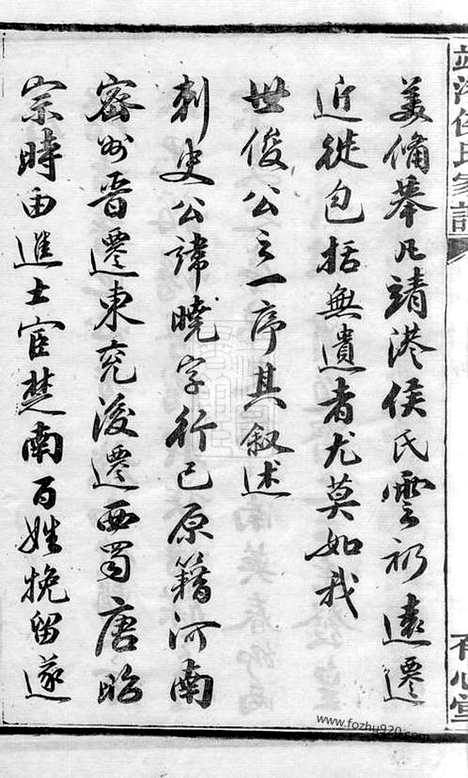 美備舉凡靖港侯氏雲礽遠遷
近徙包括無遺者尤莫如我
世俊公之一序其叙述
刺史公諱曉字行己原籍河南
密州晉遷東兗後遷西蜀唐昭
宗時由進士宦楚南百姓挽留遂
靖港侯氏家譜
有心堂
www.fozhu920.com